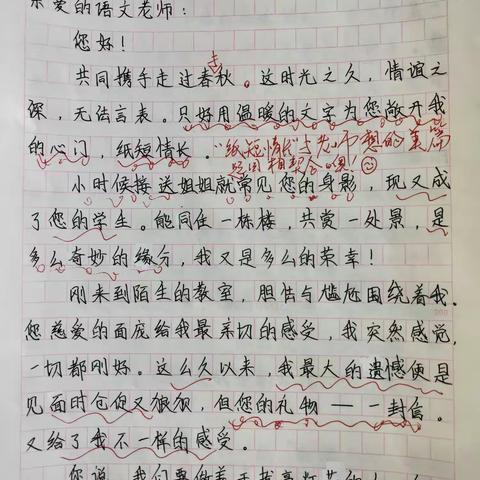 亲爱的语文老师：
您好！
共同携手走过春秋。这时光之久，情谊之
深，无法言表。只好用温暖的文字为您敞开我
的心门，纸短情长。
小时候接送姐姐就常见您的身影，现又成
了您的学生。能同住一栋楼，共赏一处景，是
多么奇妙的缘分，我又是多么的荣幸！
刚来到陌生的教室，胆怯与尴尬围绕着我。
您慈爱的面庞给我最亲切的感受，我突然感觉，
一切都刚好。这么久以来，我最大的遗憾便是
见面时仓促又狼狈，但您的礼物——一封信。
又给了我不一样的感受。
您说，我们要做善于